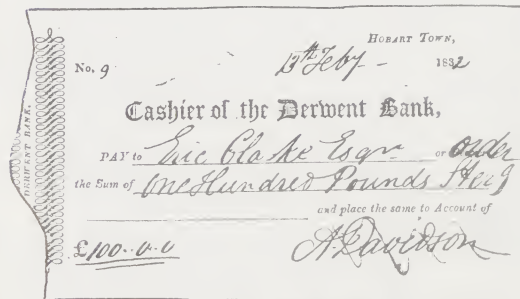 HOBART TOWN,
No. 9 13th Feby - 1832
DERWENT BANK.
Cashier of the Derwent Bank,
PAY to Eric Clarke Esqr or order
the Sum of One Hundred Pounds Sterg
and place the same to Account of
£100-0-0 A. Davidson